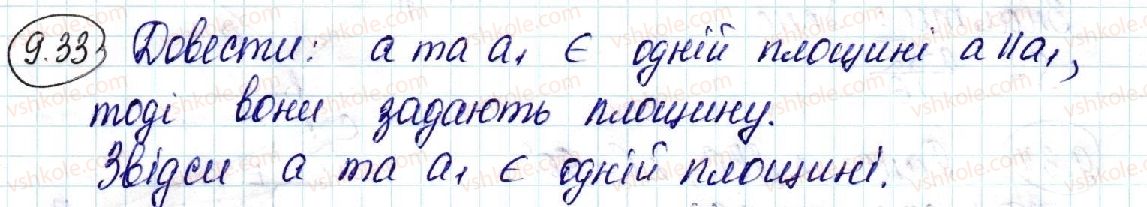 9.33 Довести: a та a₁ ∈ одній площині a∥a₁,
тоді вони задають площину.
Звідси a та a₁ ∈ одній площині.